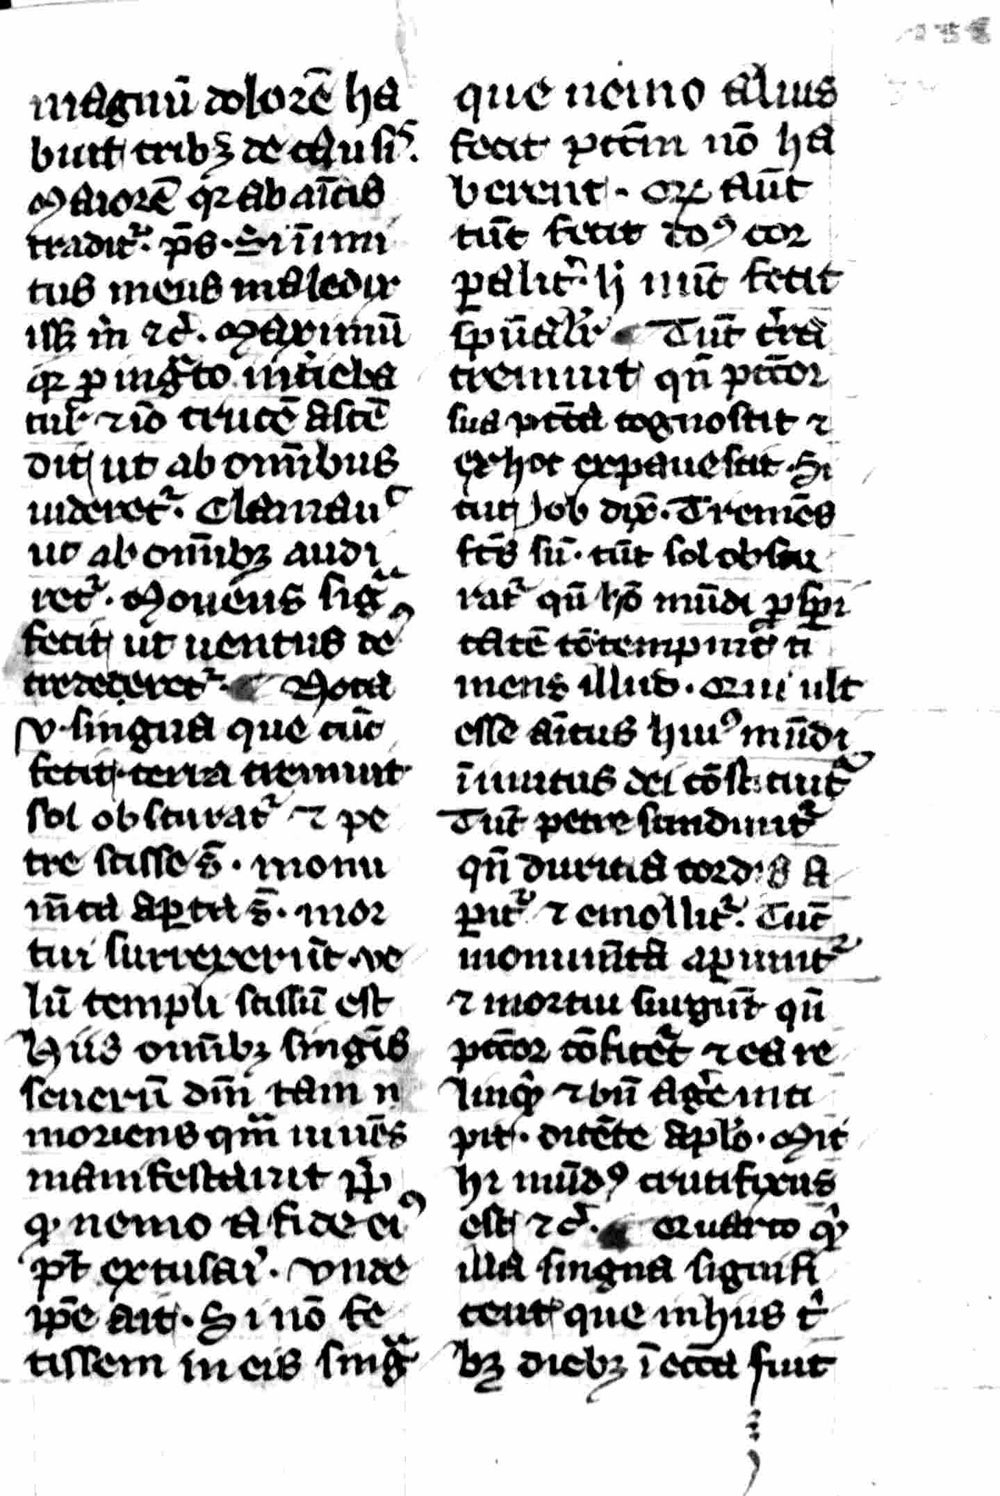 magnū dolorē ha
buit tribꝫ de causis.
Maiorē qr ab amīcis
traditꝰ. p̄s. Si īimi
cus meus maledix
iss; m̄ ⁊c̄. Maximū
qr p ingͣto
tur ⁊ iō crucē ascē
dit ut ab omībus
uideretꝰ. Clamauͥ
ut ab omībꝫ audi
retꝰ. Mouens sigͣ
fecit ut uentus de
crederetꝰ. Nota
v singna que tūc
fecit. terra tremuit
sol obscuratꝰ ⁊ pe
tre scisse s̄. monu
m̄ta apta s̄. mor
tui surrexerūt. ve
lū templi scissū est
Hiis omībꝫ singīs
seuerū dm̄ tam
moriens qm̄ iuuēs
manifestauit
qꝫ nemo a fide eiꝰ
pt̄ excusarͥ. vnde
ip̄e ait. Si nō fe
cissem in eis singͣ
que nemo alius
fecit pctm̄ nō ha
berent. aūt
tūc fecit cor
palitͥ. hͥ nūc fecit
sp̄ualrͥ Tūc tͥra
tremuit qn̄ pctōr
sua pctā cognoscit ⁊
ex hoc expauescit. Si
cut Job dix̄. Tremēs
fcūs sū. tūc sol obscu
ratꝰ qn̄ hō mūdi pspi
tatē cōtempnit ti
mens illud. Qui ult
esse amīcus huiꝰ mūdi
īimicus dei cōstituitꝰ
Tūc petre scindūtꝰ
qn̄ duricia cordis a
pitꝰ ⁊ emollitꝰ. Tūc
monum̄ta apiuntꝰ
⁊ mortui surgūt qn̄
pctōr cōfitetꝰ ⁊ ea re
linqͥt ⁊ bn̄ agͤe inci
pit. dicēte aplō. Mi
hi mūdꝰ crucifixus
est ⁊c̄. Quarto qͥ
illa singna signifi
cent que in hiis tͥ
bꝫ diebꝫ ī eccā fiūt